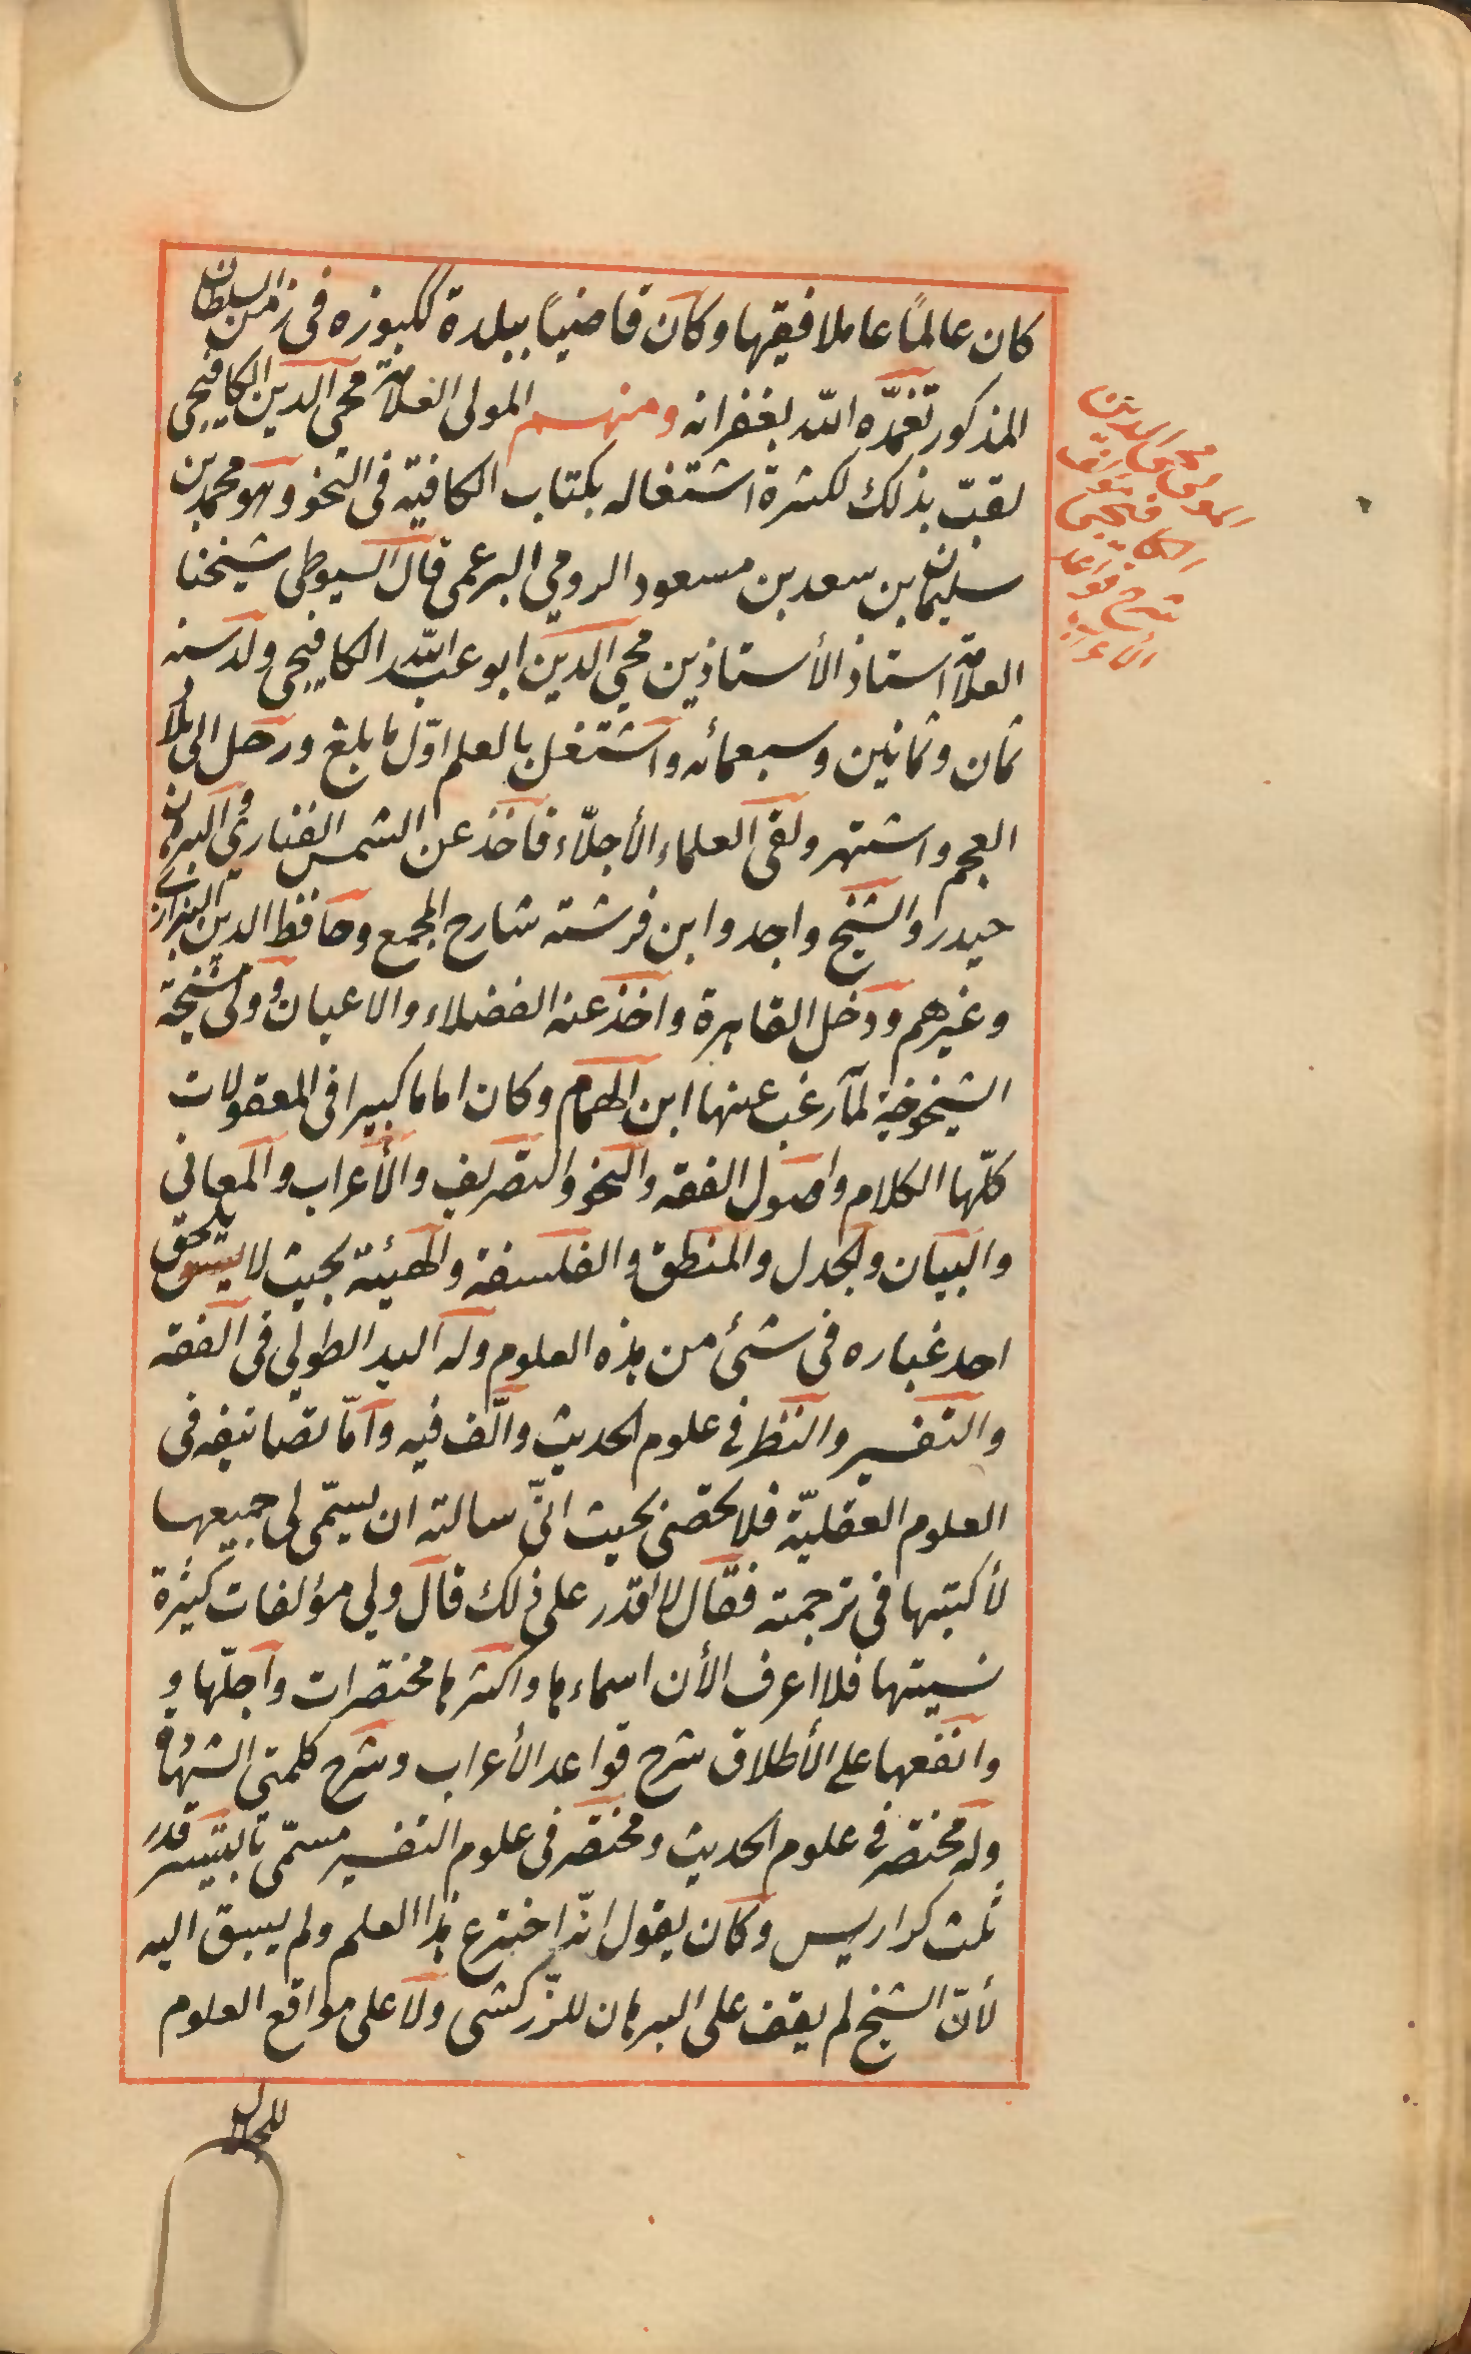 كان عالمًا عاملا فقيها وكان قاضيًا ببلدة ككبوزه فى زمن السلطان
المذكور تغمّده الله بغفرانه ومنهم المولى العلامة محيى الدين الكافيجى
لقبّ بذلك لكثرة اشتغاله بكتاب الكافية فى النحو وهو محمد بن
سليمان بن سعد بن مسعود الرومى البرعمى قال السيوطى شيخنا
العلامة استاذ الأستاذين محيى الدين ابو عبد الله الكافيجى ولد سنه
ثمان وثمانين وسبعمائه واشتغل بالعلم اوّل ما بلغ ورحل الى بلاد
العجم واشتهر ولقى العلماء الأجلّاء فاخذ عن الشمس الفنارى والبرهان
حيدر والشيخ واجد وابن فرشته شارح المجمع وحافظ الدين البزازى
وغيرهم ودخل القاهرة واخذ عنه الفضلاء والاعيان وولى مشيخة
الشيخونية لمّا رغب عنها ابن الهمام وكان اماما كبيرا فى المعقولات
كلّها الكلام واصول الفقه والنحو والتصريف والأعراب والمعانى
والبيان والجدل والمنطق والفلسفة والهيئة بحيث لا يشق
احد غباره فى شئ من هذه العلوم وله اليد الطولى فى الفقه
والتفسير والنظر فى علوم الحديث والّف فيه وامّا تصانيفه فى
العلوم العقليّة فلا تحصى بحيث انّى سالته ان يسمّى لى جميعها
لأكتبها فى ترجمته فقال لا اقدر على ذلك قال ولى مؤلفات كثيرة
نسيتها فلا اعرف الأن اسماءها واكثرها مختصرات واجلّها و
وانفعها على الأطلاق شرح قواعد الأعراب وشرح كلمتى الشهادة
وله مختصر فى علوم الحديث ومختصر فى علوم التفسير مسمّى بالتيسير قدر
ثلث كراريس وكان يقول انّه اخترع هذا العلم ولم يسبق اليه
لأنّ الشيخ لم يقف على البرهان للزركشى ولا على مواقع العلوم
للجلال
المولى محيى الدين
الكافيجى
شرح قواعد
الأعراب